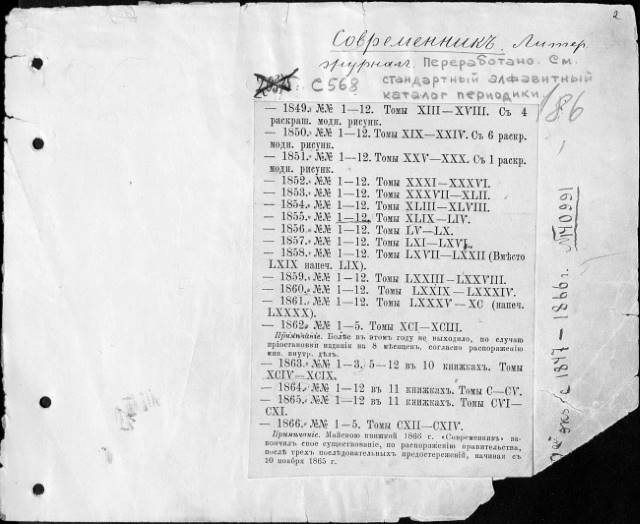 2
Современникъ. Литер.
журнал. Переработано. См.
С568 стандартный алфавитный
каталог периодики.
186
— 1849. №№ 1—12. Томы XIII—XVIII. Съ 4
раскраш. модн. рисунк.
— 1850. №№ 1—12. Томы XIX—XXIV. Съ 6 раскр.
модн. рисунк.
— 1851. №№ 1—12. Томы XXV—XXX. Съ 1 раскр.
модн. рисунк.
— 1852. №№ 1—12. Томы XXXI—XXXVI.
— 1853. №№ 1—12. Томы XXXVII—XLII.
— 1854. №№ 1—12. Томы XLIII—XLVIII.
— 1855. №№ 1—12. Томы XLIX—LIV.
— 1856. №№ 1—12. Томы LV—LX.
— 1857. №№ 1—12. Томы LXI—LXVI.
— 1858. №№ 1—12. Томы LXVII—LXXII (Вмѣсто
LXIX напеч. LIX).
— 1859. №№ 1—12. Томы LXXIII—LXXVIII.
— 1860. №№ 1—12. Томы LXXIX—LXXXIV.
— 1861. №№ 1—12. Томы LXXXV—XC (напеч.
LXXXX).
— 1862. №№ 1—5. Томы XCI—XCIII.
Примѣчаніе. Болѣе въ этомъ году не выходило, по случаю
пріостановки изданія на 8 мѣсяцевъ, согласно распоряженію
мин. внутр. дѣлъ.
— 1863. №№ 1—3, 5—12 въ 10 книжкахъ. Томы
XCIV—XCIX.
— 1864. №№ 1—12 въ 11 книжкахъ. Томы C—CV.
— 1865. №№ 1—12 въ 11 книжкахъ. Томы CVI—
CXI.
— 1866. №№ 1—5. Томы CXII—CXIV.
Примѣчаніе. Майскою книжкой 1866 г. «Современникъ» за-
кончилъ свое существованіе, по распоряженію правительства,
послѣ трехъ послѣдовательныхъ предостереженій, начиная съ
10 ноября 1865 г.
2й экз. с 1847—1866 г. №140991